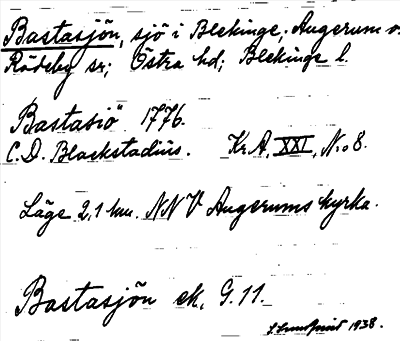 Bastasjön, sjö i Blekinge; Augerum o.
Rödeby sr; Östra hd; Blekinge l.
Bastasiö 1776.
C.D. Blackstadius. Kr.A. XXI, N:o 8.
Läge 2,1 km. NNV Augerums kyrka.
Bastasjön ek. G.11.
1938.